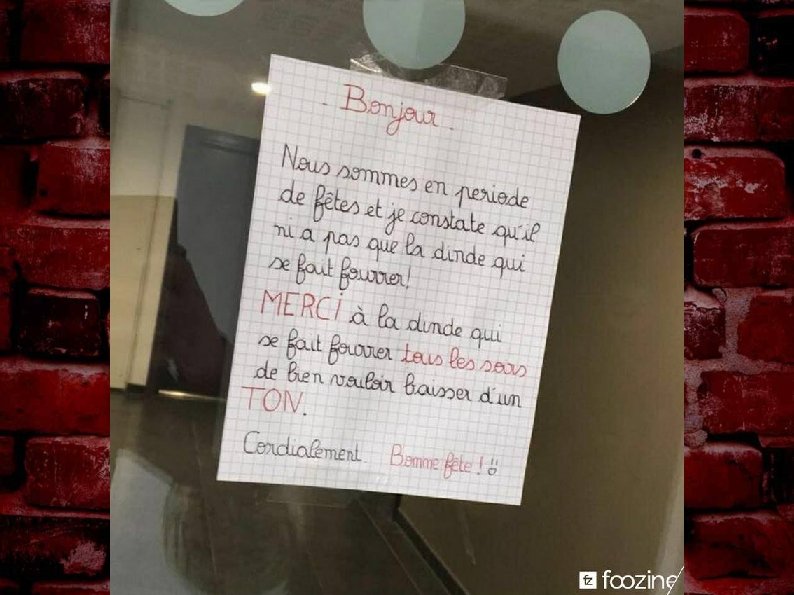 - Bonjour -
Nous sommes en periode
de fêtes et je constate qu'il
ni a pas que la dinde qui
se fait fourrer!
MERCi à la dinde qui
se fait fourrer tous les soirs
de bien vouloir baisser d'un
TON.
Cordialement Bonne fête ! :)
fz foozine